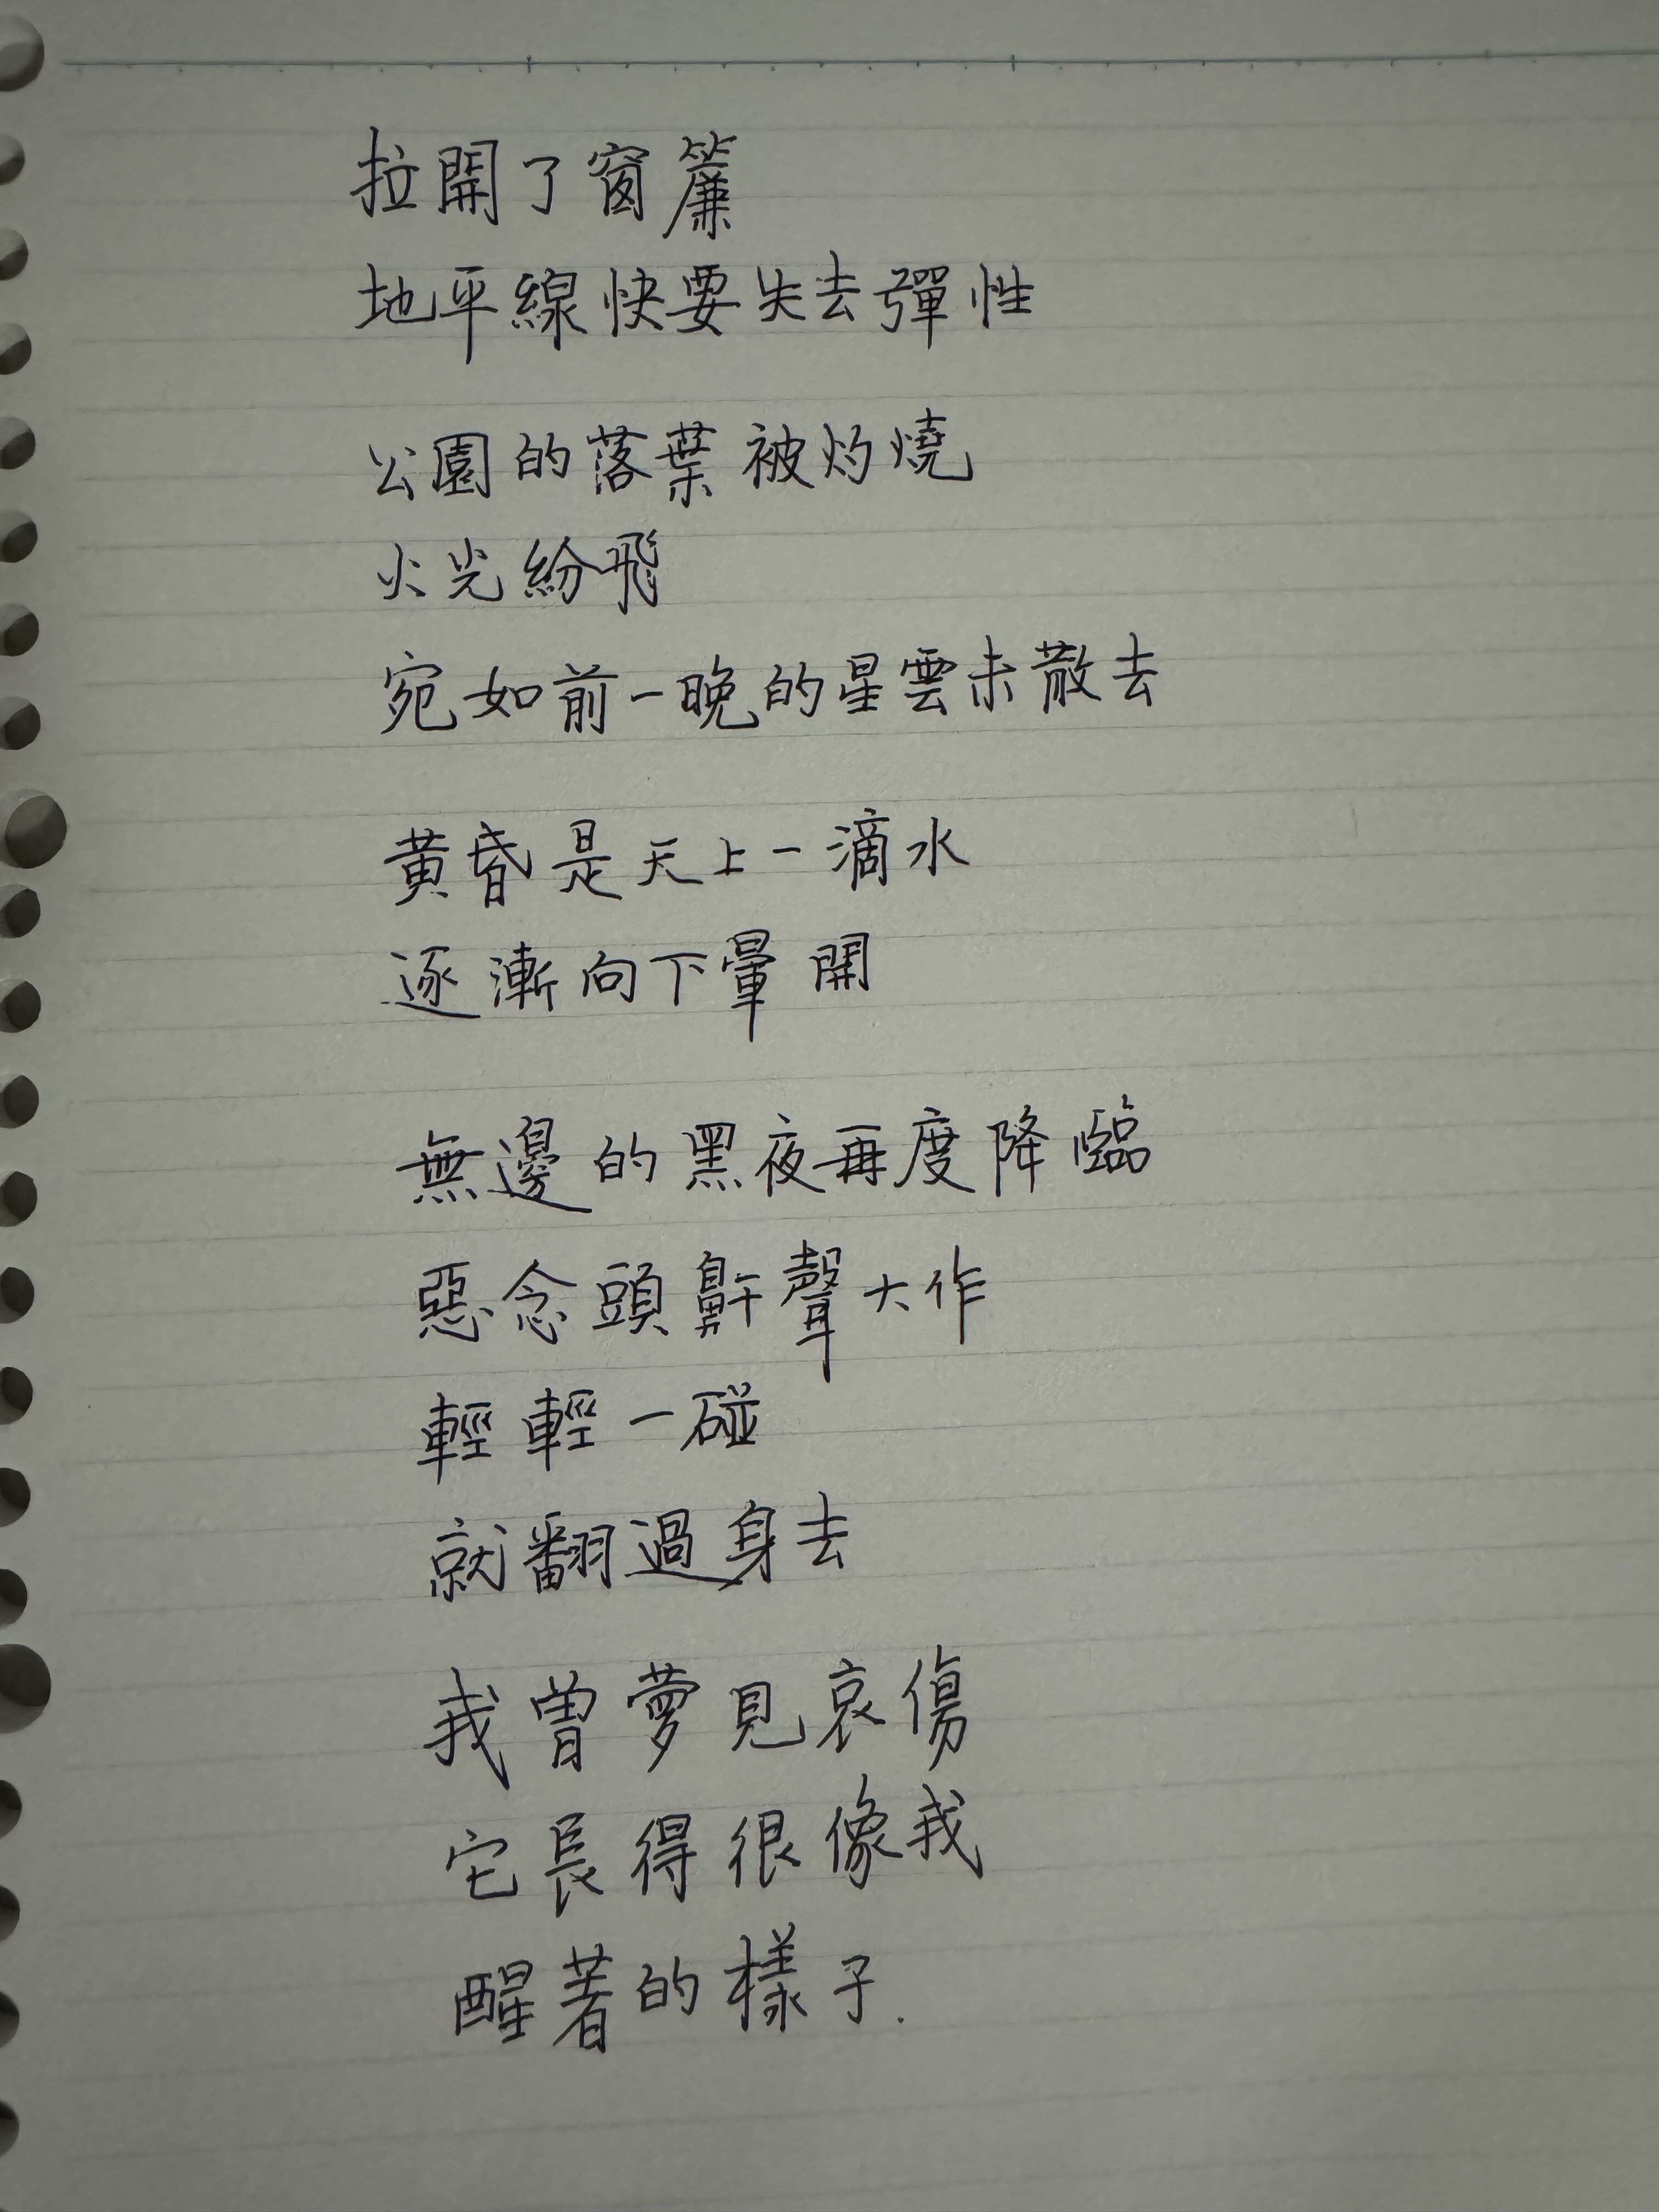 拉開了窗簾
地平線快要失去彈性
公園的落葉被灼燒
火光紛飛
宛如前一晚的星雲未散去
黃昏是天上一滴水
逐漸向下暈開
無邊的黑夜再度降臨
惡念頭鼾聲大作
輕輕一碰
就翻過身去
我曾夢見哀傷
它長得很像我
醒著的樣子.